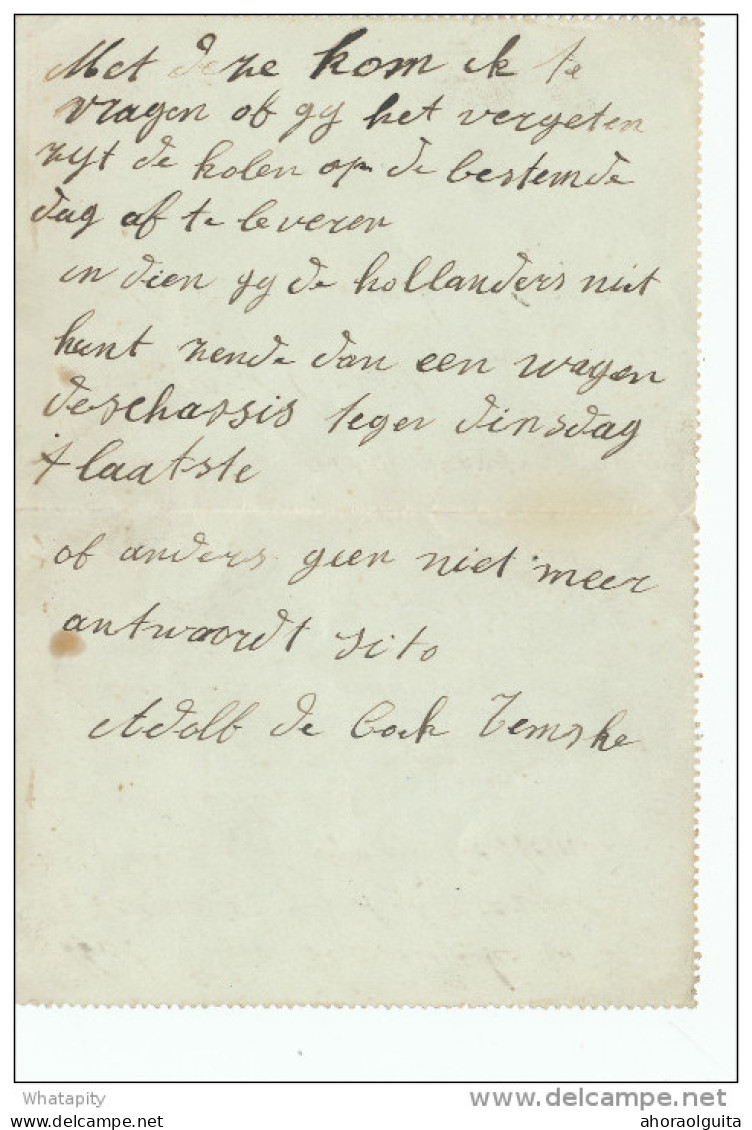 Met deze kom ik te
vragen of gy het vergeten
zyt de kolen op de bestemde
dag af te leveren
in dien gy de hollanders niet
kunt zende dan een wagen
deschassis tegen dinsdag
t laatste
of anders geen niet meer
antwoordt sito
Adolf de Cock Temske
Whatapity
www.delcampe.net
dag en zon
ahoraolguita